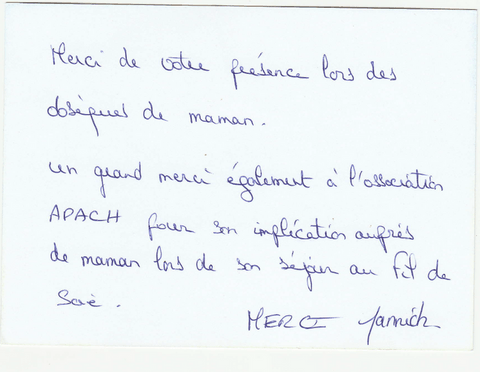 Merci de votre présence lors des
obsèques de maman.
un grand merci également à l'association
APACH pour son implication auprès
de maman lors de son séjour au fil de
Soie.
MERCI Yannick